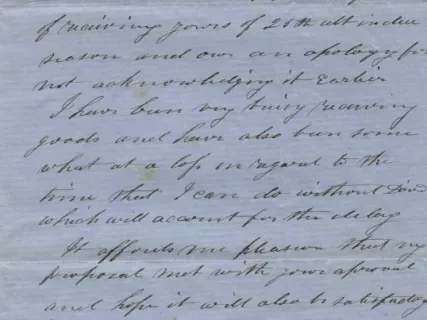 of receiving yours of 20th ult in due
season and owe an apology for
not acknowledging it Earlier
I have been very busy receiving
goods and have also been some
what at a loss in regard to the
time that I can do without
which will account for the delay
It affords me pleasure that my
proposal met with your aproval
and hope it will also be satisfactory